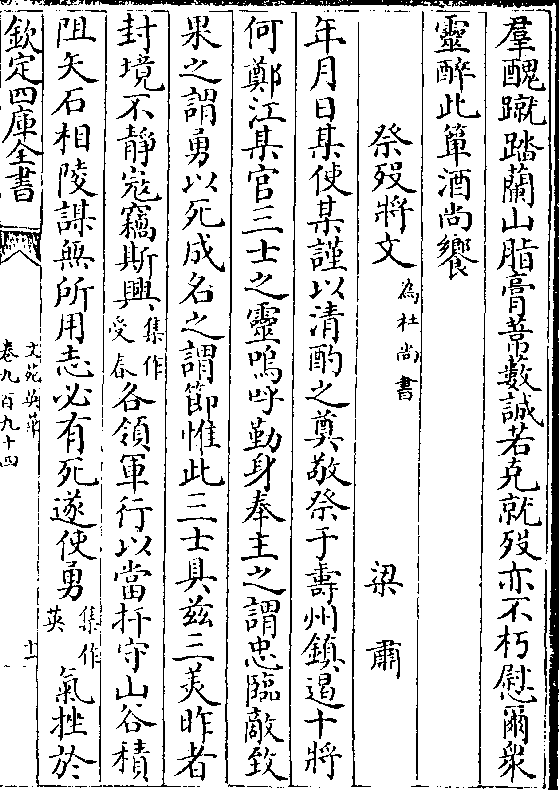 羣醜蹴踏蘭山脂膏蒿藪誠若克就殁亦不朽慰爾衆
靈醉此箪酒尚饗
祭殁將文 為杜尚書 梁肅
年月日某使某謹以清酌之奠敬祭于壽州鎮遏十將
何鄭江某官三士之靈嗚呼勤身奉主之謂忠臨敵致
果之謂勇以死成名之謂節惟此三士具兹三美昨者
封境不靜宼竊斯興集作受春各領軍行以當扞守山谷積
阻矢石相陵謀無所用志必有死遂使勇集作英氣挫於
欽定四庫全書
文苑英華
卷九百九十四
十一